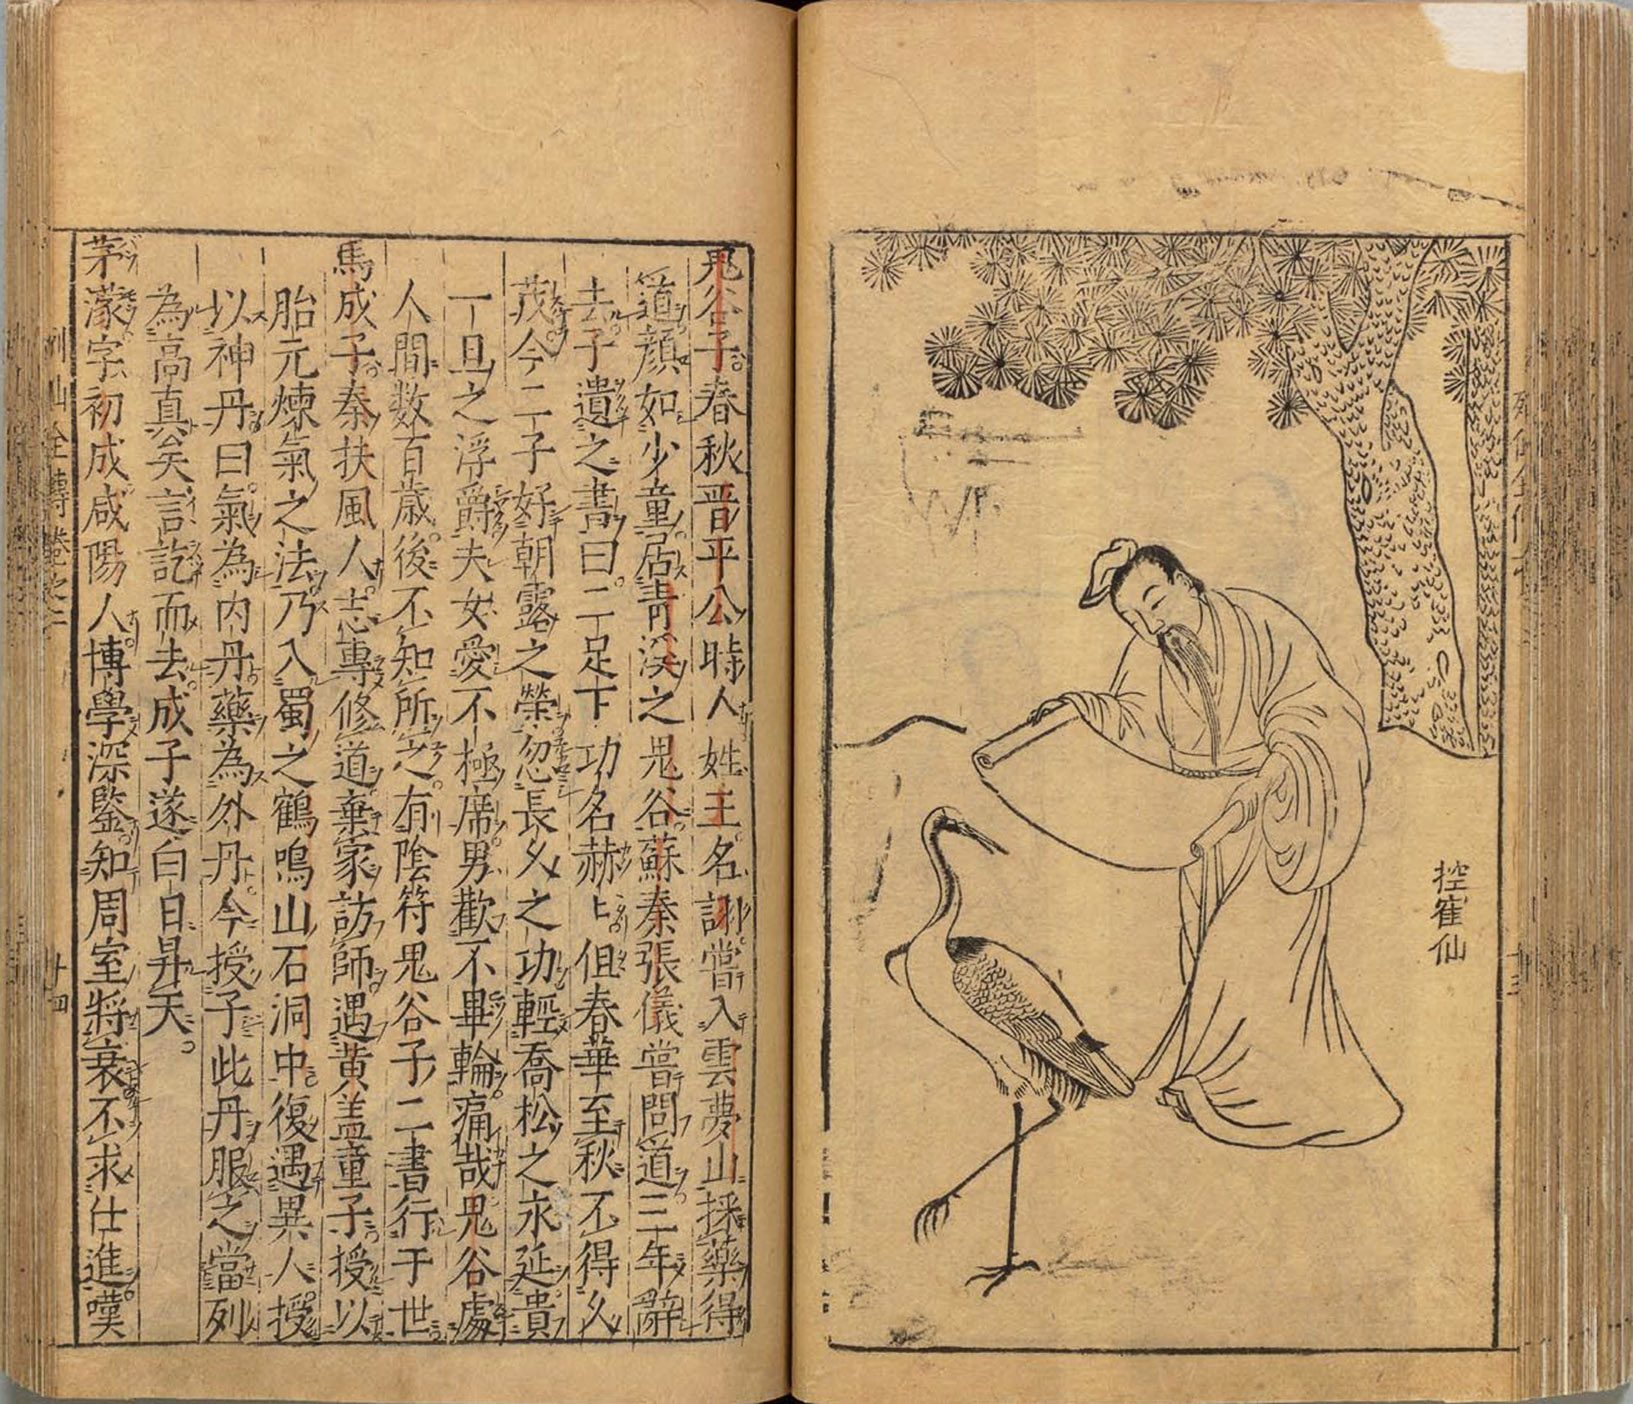 控寉仙
鬼谷子。春秋晋平公時人姓王名詡。嘗入雲夢山採藥得
道顔如少童。居青溪之鬼谷。蘇秦張儀嘗問道三年辭
去子遺之書曰。二足下功名赫〻。但春華至秋不得久
茂今二子好朝露之榮忽長久之功輕喬松之永延貴
一旦之浮爵夫女愛不極席男歡不畢輪。痛哉鬼谷處
人間数百歳。後不知所之。有陰符鬼谷子二書行于世
馬成子。秦扶風人。志專修道棄家訪師。遇黄盖童子授以
胎元煉氣之法乃入蜀之鶴鳴山石洞中復遇異人。授
以神丹曰。氣為内丹。藥為外丹。今授子此丹服之當列
為高真矣言訖而去。成子遂白日昇天。
茅濛字初成咸陽人。博學深鑒。知周室將衰不求仕進。嘆
列仙全傳卷之二
十四